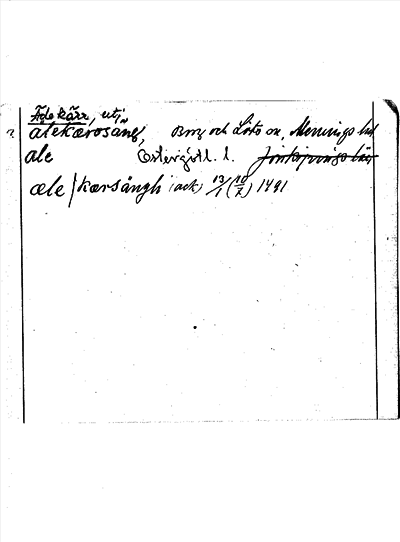 Ålekärr, uti
? alekærosäng, Borg och Löts sn, Memmings hd
ale Östergötl. l. Jönköpings län
æle/kærsångh (ack) 13/1 (10/7) 1491